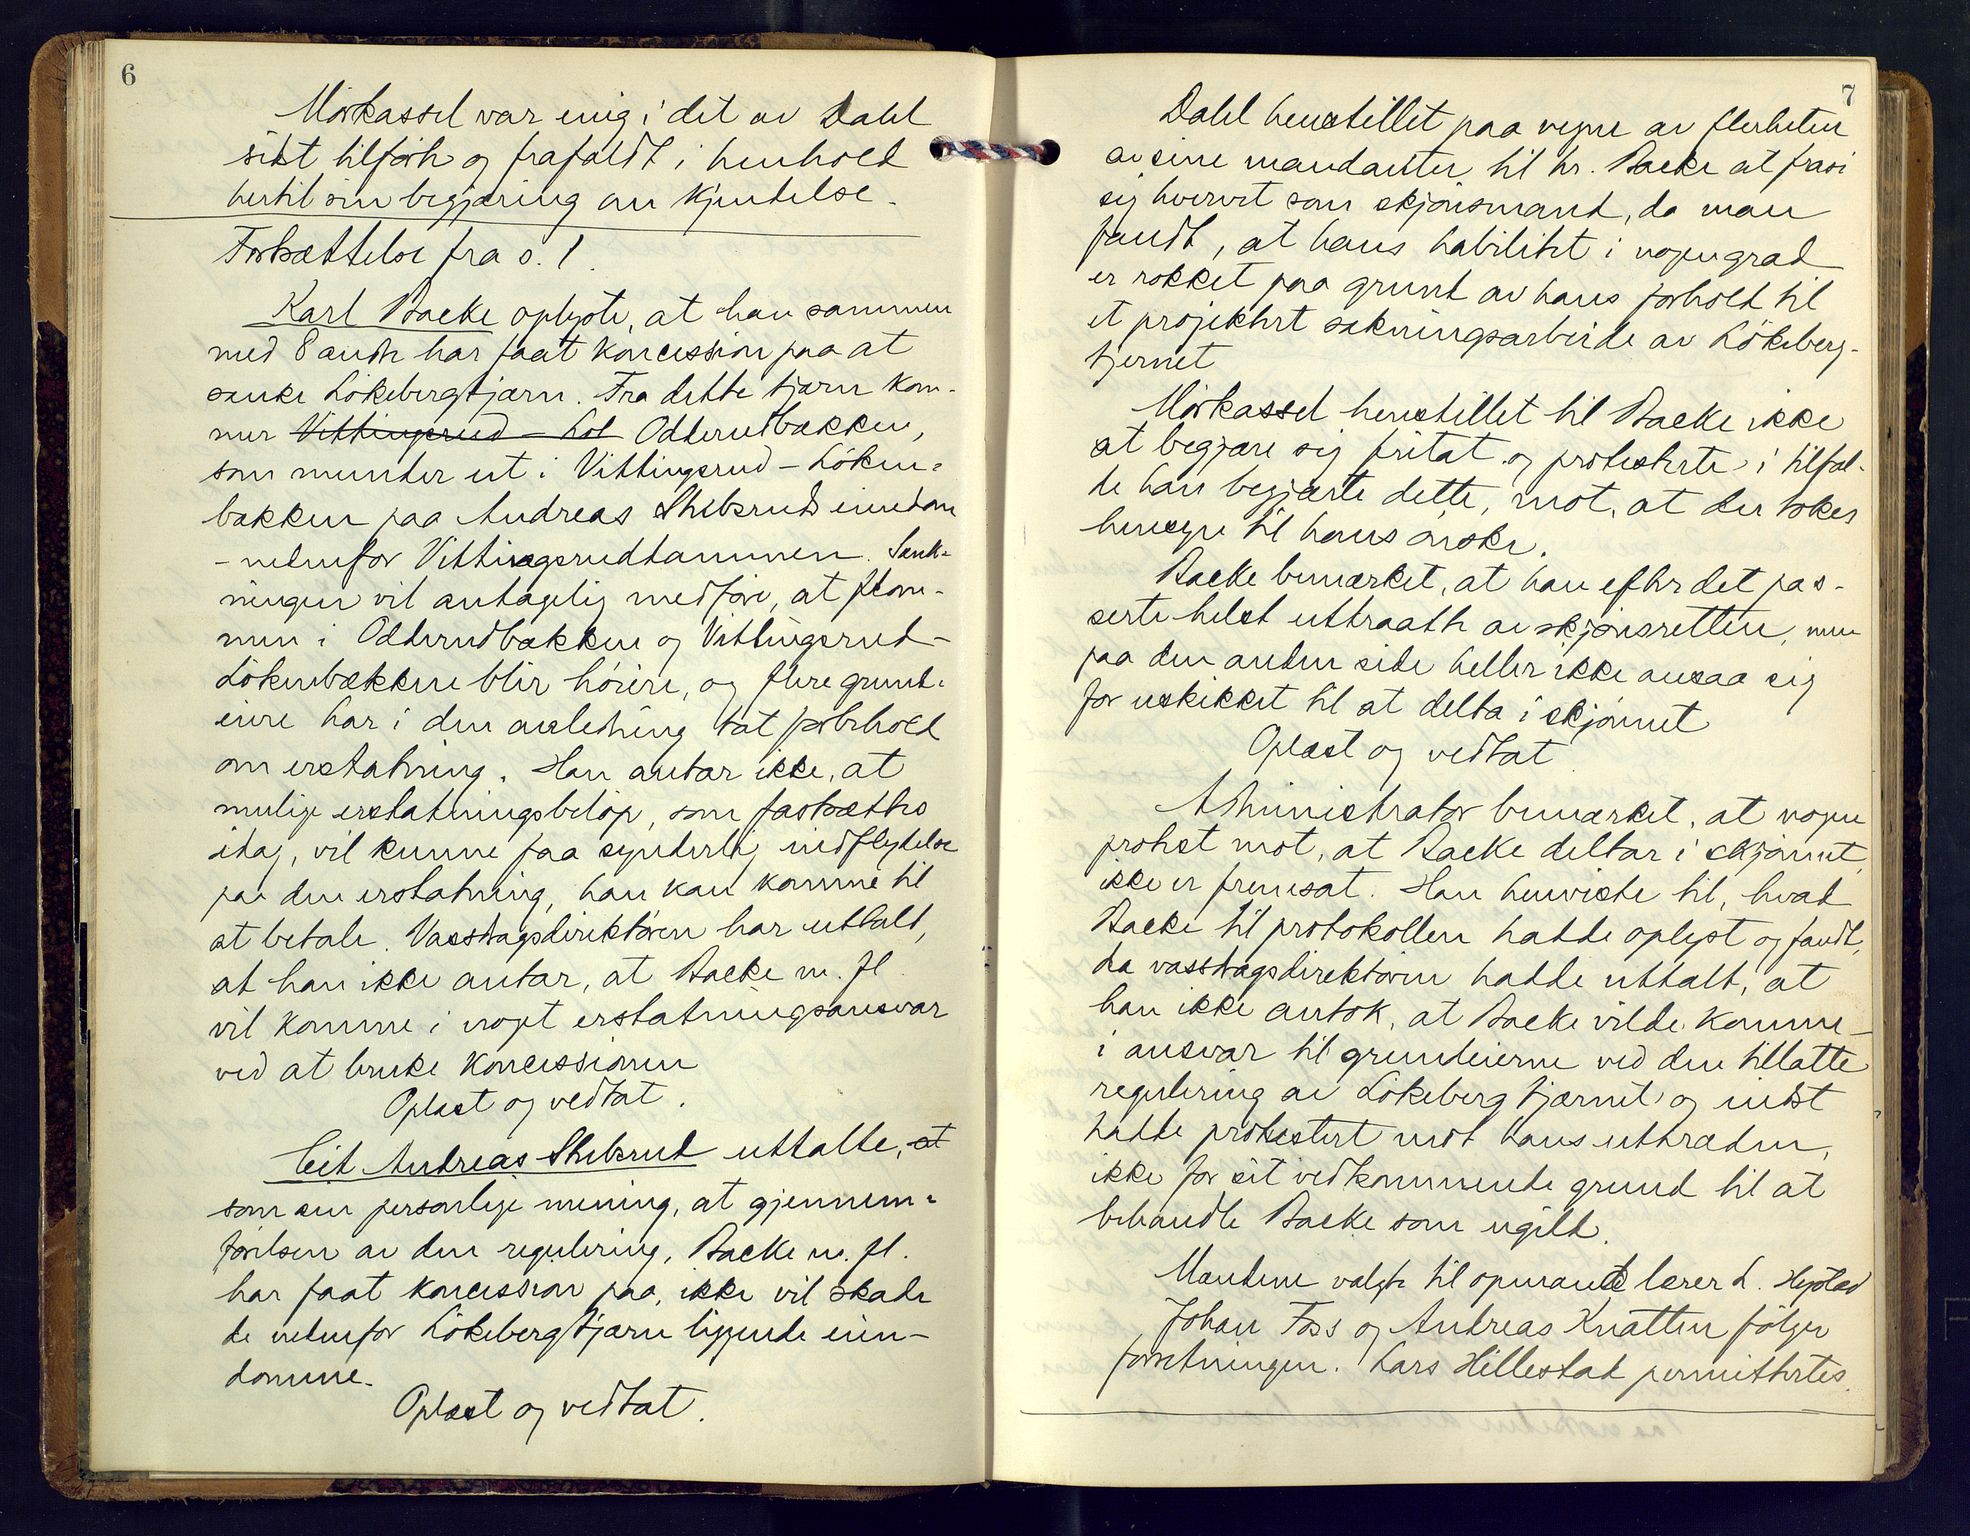 6
Mörkassel var enig i det av Dahl
sidst tilførte og frafaldt i henhold
hertil sin begjæring om kjendelse.
Fortsættelse fra s. 1.
Karl Backe oplyste, at han sammen
med 8 andre har faat koncession paa at
sænke Lökebergtjærn. Fra dette tjern kom-
mer Vittingsrud - Löl Odderudbækken,
som munder ut i Vittingsrud - Löken-
bækken paa Andreas Skibsruds eiendom
- nedenfor Vittingsruddammen. Sænk-
ningen vil antagelig medføre, at flom-
men i Odderudbækken og Vittingsrud-
Lökenbækkene blir høiere, og flere grund-
eiere har i den anledning tat forbehold
om erstatning. Han antar ikke, at
mulige erstatningsbeløp, som fastsættes
idag, vil kunne faa synderlig indflydelse
paa den erstatning, han kan komme til
at betale. Vassdragsdirektören har uttalt,
at han ikke antar, at Backe m. fl.
vil komme i noget erstatningsansvar
ved at bruke koncessionen
Oplæst og vedtat.
Eit Andreas Skibsrud uttalte, at
som sin personlige mening, at gjennem-
førelsen av den regulering, Backe m. fl.
har faat koncession paa, ikke vil skade
de nedenfor Lökebergtjærn liggende eien-
domme.
Oplæst og vedtat.
7
Dahl henstillet paa vegne av flerheten
av sine mandanter til hr. Backe at frasi
sig hvervet som skjönsmand, da man
fandt, at hans habilitet i nogen grad
er rokket paa grund av hans forhold til
et projektert sænkningsarbeide av Lökeberg-
tjernet
Mörkassel henstillet til Backe ikke
at begjære sig fritat og protesterte i tilfæl-
de han begjærte dette, mot, at der tokes
hensyn til hans ønske.
Backe bemærket, at han efter det pas-
serte helst uttraadte av skjønsretten, men
paa den anden side heller ikke ansaa sig
for uskikket til at delta i skjønnet
Oplæst og vedtat.
Administrator bemærket, at nogen
protest mot, at Backe deltar i skjønnet,
ikke er fremsat. Han henviste til, hvad
Backe til protokollen hadde oplyst og fandt,
da vassdragsdirektøren hadde uttalt, at
han ikke antok, at Backe vilde komme
i ansvar til grundeierne ved den tillatte
regulering av Lökebergtjærnet og indst
hadde protestert mot hans uttræden,
ikke for sit vedkommende grund til at
behandle Backe som ugild.
Mændene valgte til opmand lærer L.
Johan Foss og Andreas Knatten følger
forretningen. Lars Hillestad permittertes.